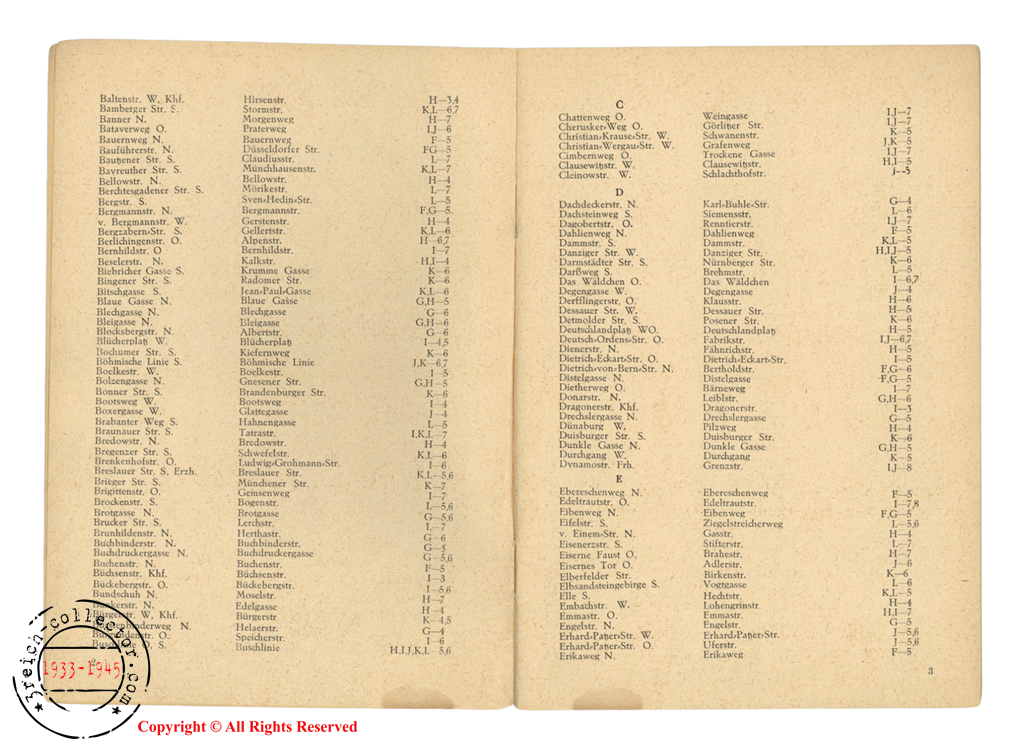 Baltenstr. W, Khf. Hirsenstr. H—3,4
Bamberger Str. S. Stormstr. K,L—6,7
Banner N. Morgenweg H—7
Bataverweg O. Praterweg I,J—6
Bauernweg N. Bauernweg F—5
Bauführerstr. N. Düsseldorfer Str. FG—5
Bautzener Str. S. Claudiusstr. L—7
Bayreuther Str. S. Münchhausenstr. K,L—7
Bellowstr. N. Bellowstr. H—4
Berchtesgadener Str. S. Mörikestr. L—7
Bergstr. S. Sven-Hedin-Str. L—5
Bergmannstr. N. Bergmannstr. F,G—5.
v. Bergmannstr. W. Gerstenstr. H—4
Bergzabern-Str. S. Gellertstr. K,L—6
Berlichingenstr. O. Alpenstr. H—6,7
Bernhildstr. O Bernhildstr. I—7
Beselerstr. N. Kalkstr. H,I—4
Biebricher Gasse S. Krumme Gasse K—6
Bingener Str. S. Radomer Str. K—6
Bitschgasse S. Jean-Paul-Gasse K,L—6
Blaue Gasse N. Blaue Gasse G,H—5
Blechgasse N. Blechgasse G—6
Bleigasse N. Bleigasse G,H—6
Blocksbergstr. N. Albertstr. G—6
Blücherplatz W. Blücherplatz I—4,5
Bochumer Str. S. Kiefernweg K—6
Böhmische Linie S. Böhmische Linie J,K—6,7
Boelkestr. W. Boelkestr. I—5
Bolzengasse N. Gnesener Str. G,H—5
Bonner Str. S. Brandenburger Str. K—6
Bootsweg W. Bootsweg I—4
Boxergasse W. Glattegasse J—4
Brabanter Weg S. Hahnengasse L—5
Braunauer Str. S. Tatrastr. I,K,L—7
Bredowstr. N. Bredowstr. H—4
Bregenzer Str. S. Schwefelstr. K,L—6
Brenkenhofstr. O. Ludwig-Grohmann-Str. I—6
Breslauer Str. S, Erzh. Breslauer Str. K,L—5,6
Brieger Str. S. Münchener Str. K—7
Brigittenstr. O. Gemsenweg I—7
Brockenstr. S. Bogenstr. L—5,6
Brotgasse N. Brotgasse G—5,6
Brucker Str. S. Lerchstr. L—7
Brunhildenstr. N. Herthastr. G—6
Buchbinderstr. N. Buchbinderstr. G—5
Buchdruckergasse N. Buchdruckergasse G—5,6
Buchenstr. N. Buchenstr. F—5
Büchsenstr. Khf. Büchsenstr. I—3
Bückebergstr. O. Bückebergstr. I—5,6
Bundschuh N. Moselstr. H—7
Bunkerstr. N. Edelgasse H—4
Bürgerstr. W, Khf. Bürgerstr K—4,5
binderweg N. Helaerstr. G—4
O. Speicherstr. I—6
O, S. Buschlinie H,I,J,K,L—5,6
C
Chattenweg O. Weingasse I,J—7
Cherusker-Weg O. Görlitzer Str. I,J—7
Christian-Krause-Str. W. Schwanenstr. K—5
Christian-Wergau-Str. W. Grafenweg J,K—5
Cimbernweg O. Trockene Gasse I,J—7
Clausewitzstr. W. Clausewitzstr. H,I—5
Cleinowstr. W. Schlachthofstr. J—5
D
Dachdeckerstr. N. Karl-Buhle-Str. G—4
Dachsteinweg S. Siemensstr. L—6
Dagobertstr. O. Renntierstr. I,J—7
Dahlienweg N. Dahlienweg F—5
Dammstr. S. Dammstr. K,L—5
Danziger Str. W. Danziger Str. H,I,J—5
Darmstädter Str. S. Nürnberger Str. K—6
Darßweg S. Brehmstr. L—5
Das Wäldchen O. Das Wäldchen I—6,7
Degengasse W. Degengasse J—4
Derfflingerstr. O. Klausstr. H—6
Dessauer Str. W. Dessauer Str. H—5
Detmolder Str. S. Posener Str. K—6
Deutschlandplatz WO. Deutschlandplatz H—5
Deutsch-Ordens-Str. O. Fabrikstr. I,J—6,7
Dienerstr. N. Fähnrichstr. H—5
Dietrich-Eckart-Str. O. Dietrich-Eckart-Str. I—5
Dietrich-von-Bern-Str. N. Bertholdstr. F,G—6
Distelgasse N. Distelgasse F,G—5
Dietherweg O. Bärneweg I—7
Donarstr. N. Leiblstr. G,H—6
Dragonerstr. Khf. Dragonerstr. I—3
Drechslergasse N. Drechslergasse G—5
Dünaburg W. Pilzweg H—4
Duisburger Str. S. Duisburger Str. K—6
Dunkle Gasse N. Dunkle Gasse G,H—5
Durchgang W. Durchgang K—5
Dynamostr. Frh. Grenzstr. I,J—8
E
Ebereschenweg N. Ebereschenweg F—5
Edeltrautstr. O. Edeltrautstr. I—7,8
Eibenweg N. Eibenweg F,G—5
Eifelstr. S. Ziegelstreicherweg L—5,6
v. Einem-Str. N. Gasstr. H—4
Eisenerzstr. S. Stifterstr. L—7
Eiserne Faust O. Brahestr. H—7
Eisernes Tor O. Adlerstr. J—6
Elberfelder Str. Birkenstr. K—6
Elbsandsteingebirge S. Vogtgasse L—6
Elle S. Hechtstr. K,L—5
Embachstr. W. Lohengrinstr. H—4
Emmastr. O. Emmastr. H,I—7
Engelstr. N. Engelstr. G—5
Erhard-Patzer-Str. W. Erhard-Patzer-Str. J—5,6
Erhard-Patzer-Str. O. Uferstr. J—5,6
Erikaweg N. Erikaweg F—5
3
3reich-collector.com
1933-1945
Copyright © All Rights Reserved